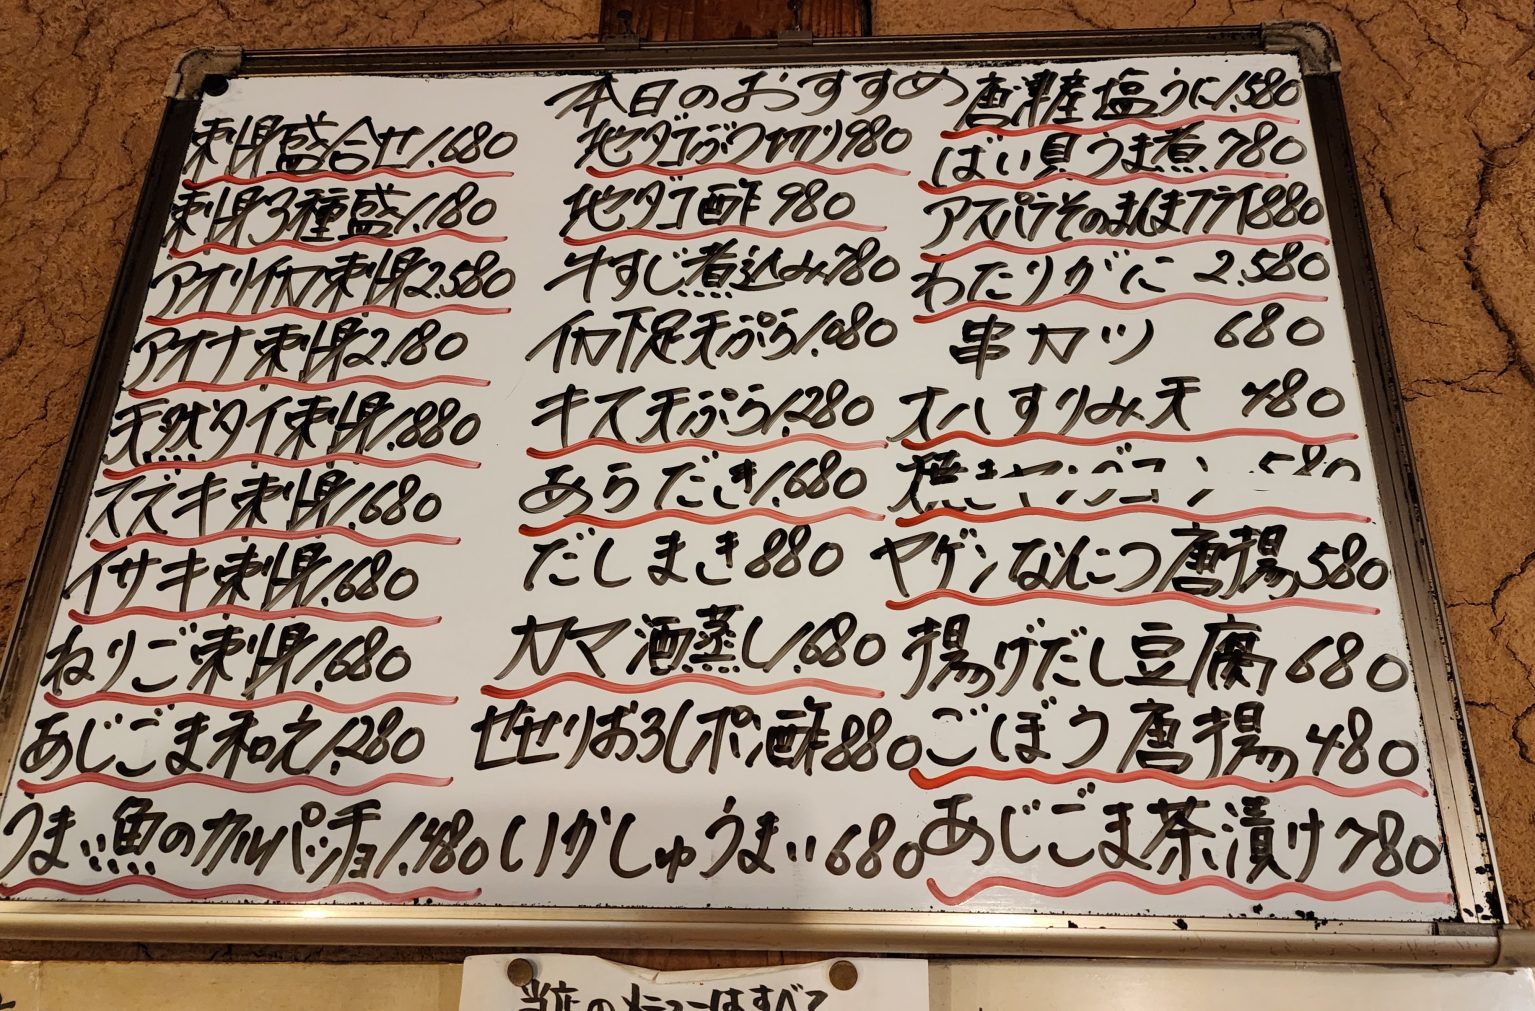 本日のおすすめ
刺身盛合せ1.680
刺身3種盛1.180
アオリイカ刺身2.580
アオナ刺身2.180
天然タイ刺身1.880
スズキ刺身1.680
イサキ刺身1.680
ねりご刺身1.680
あじごま和え1.280
うまい魚のカルパッチョ1.480
地ダコぶつ切り980
地ダコ酢980
牛すじ煮込み780
イカ下足天ぷら1.080
キス天ぷら1.280
あらだき1.680
だしまき880
カマ酒蒸し1.680
せせりおろしポン酢880
いかしゅうまい680
唐津産塩うに1.580
ばい貝うま煮780
アスパラそのまんまフライ880
わたりがに2.580
串カツ 680
すりみ天 480
焼き
ヤゲンなんこつ唐揚580
揚げだし豆腐680
ごぼう唐揚480
あじごま茶漬け780
当店のメニューはすべて